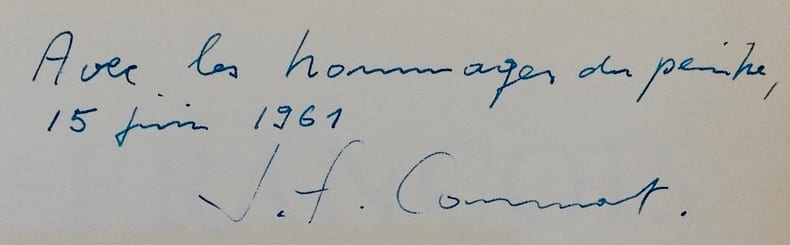 Avec les hommages du peintre,
15 juin 1961
J. F. Commot.